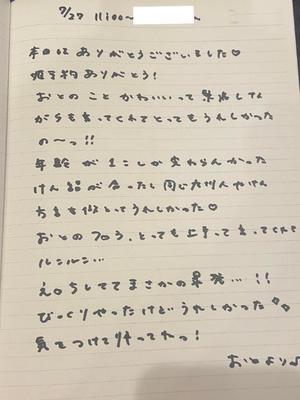 7/27 11:00〜
本日はありがとうございました♡
姫予約ありがとう!
おとのこと かわいいって 来店してん
からも言ってくれてとってもうれしかった
の〜っ!!
年齢が1こしか変わらんかった
けん話が合ったし同じ九州人やけん
方言も似とってうれしかった♡
おとの フロう、とっても上手って言ってくれて
ルンルン…
えっちしてて まさかの
びっくりやったけどうれしかった
気をつけて帰ってねっ!
おとより♪